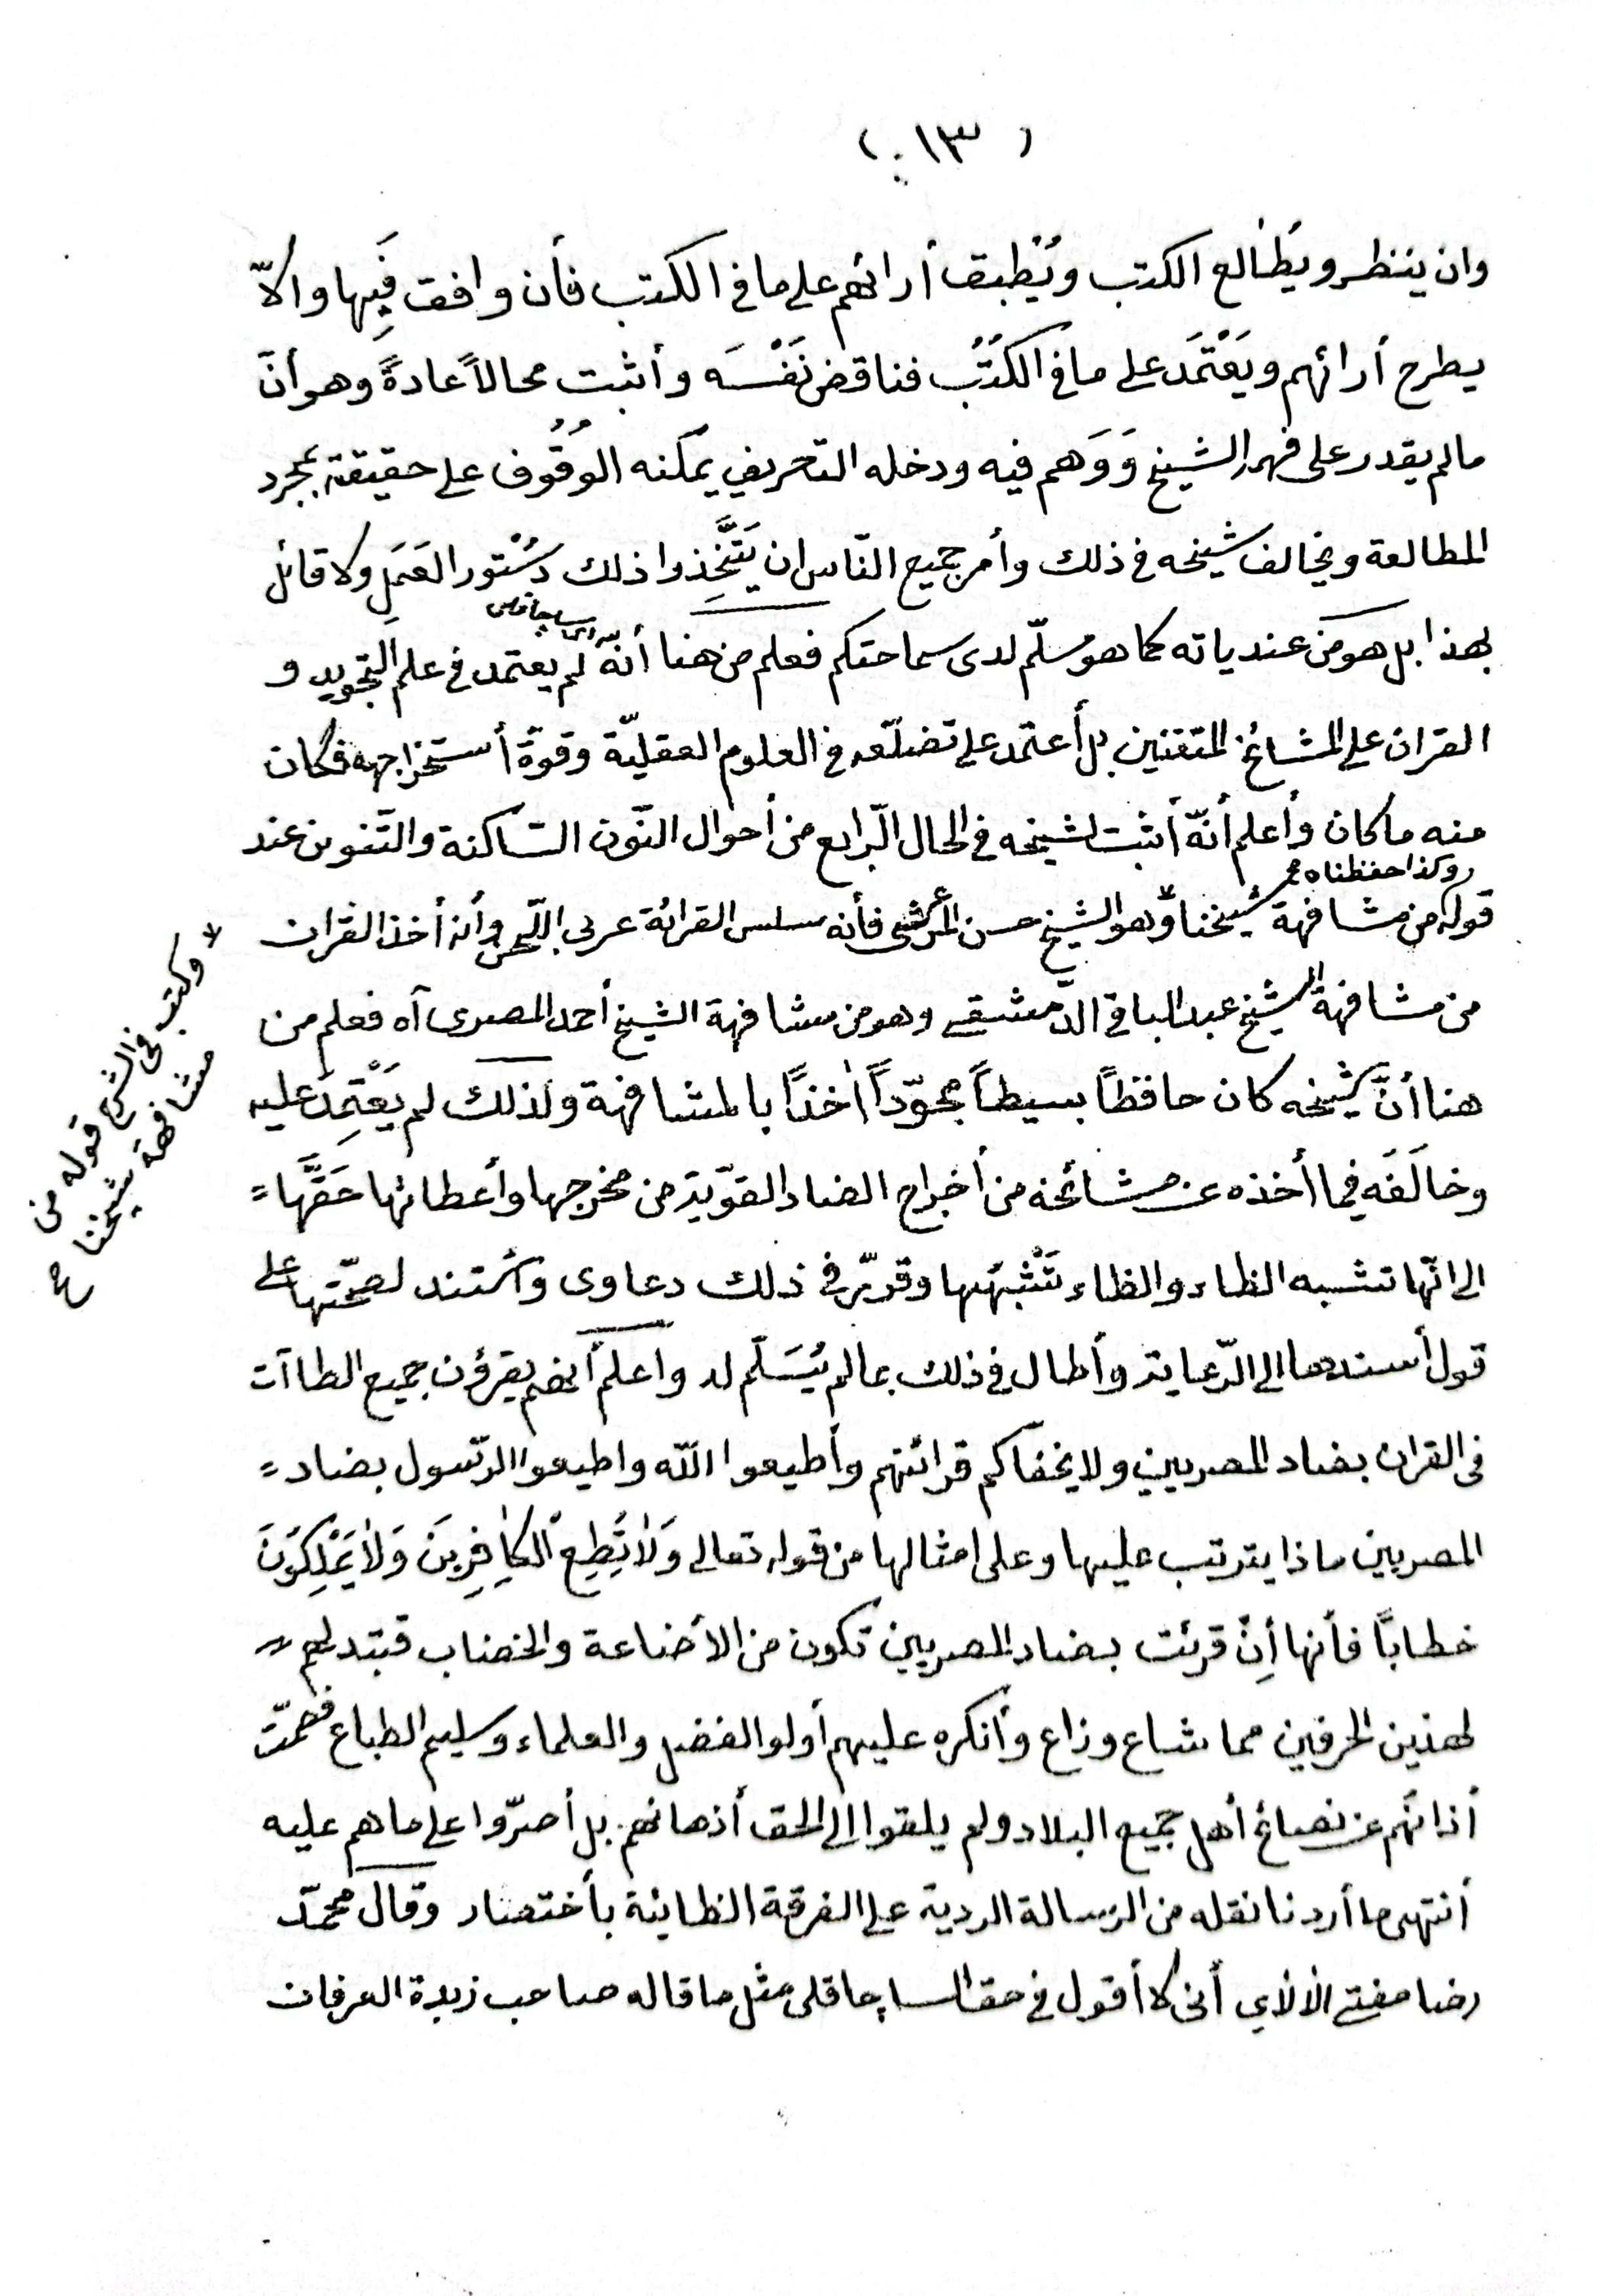 ( ١٣ )
وان ينظر ويُطالع الكتب ويُطبق أرائهم على ما فى الكتب فأن وافقت فَبِها والّا
يطرح أرائهم ويَعْتَمَد على ما فى الكُتُب فناقض نَفْسَه وأثبت محالاً عادةً وهو أنّ
مالم يقدر على فهمه الشيخ وَوَهم فيه ودخله التحريف يمكنه الوُقُوف على حقيقته بمجرد
المطالعة ويخالف شيخه فى ذلك وأمر جميع النّاس ان يَتَّخِذوا ذلك دُسْتور العَمَلِ ولا قائل
بهذا بل هو من عندياته كما هو مسلّم لدى سماحتكم فعلم من هنا أنّه لم يعتمد فى علم التجويد و
اى ساچاقلى
القران على المشائخ المتقنين بل أعتمد على تضلّعه فى العلوم العقليّة وقوة أستخراجه فكان
منه ما كان وأعلم أنّه أثبت لشيخه فى الحال الرّابع من أحوال النّون السّاكنة والتّنوين عند
قوله من مشافهة شيخنا وهو الشيخ حسن المرعشى فأنه سلس القرائة عربى اللّحن وأنه أخذ القران
وكذا حفظناه
من مشافهة الشيخ عبد الباقى الدّمشقى وهو من مشافهة الشيخ أحمد المصرى آه فعلم من
هنا أنَّ شيخه كان حافظاً بسيطاً مجوّداً أخذًا بالمشافهة ولذلك لم يَعْتَمِد عليه
وخالَفَه فيما أخذه عن مشائخه من أخراج الضاد القويّة من مخرجها وأعطائها حَقَّها =
الى انّها تشبه الظاء والظاء تشْبهها وقرّر فى ذلك دعاوى وأستند لصحّتها على
قول أسندها الى الرّعاية وأطال فى ذلك بما لم يُسَلَّم له وأعلم أنهم يقرؤن جميع الطاآت
فى القران بضاد المصريين ولا يخفاكم قرائتهم وأطيعوا اللّه واطيعوا الرّسول بضاد =
المصريين ماذا يترتب عليها وعلى امثالها من قوله تعالى وَلاٰ تُطِعِ الكٰاِفِرِينَ وَلاٰ يَمْلِكُونَ
خطاباً فأنها أِنْ قرئت بضاد المصريين تكون من الأضاعة والخضاب فتبديلهم =
لهذين الحرفين مما شاع وذاع وأنكره عليهم أولوا الفضل والعلماء وسليم الطباع فصمّت
أذانهم عن نصائح أهل جميع البلاد ولم يلقوا الى الحق أذهانهم بل أصرّوا على ما هم عليه
أنتهى ما أردنا نقله من الرسالة الردية على الفرقة الظائية بأختصار وقال محمّد
رضا مفتى الألاى أنى لا أقول فى حق الساچاقلى مثل ما قاله صاحب زبدة العرفان
* وكتب فى الشرح قوله من
مشافهة شيخنا ح